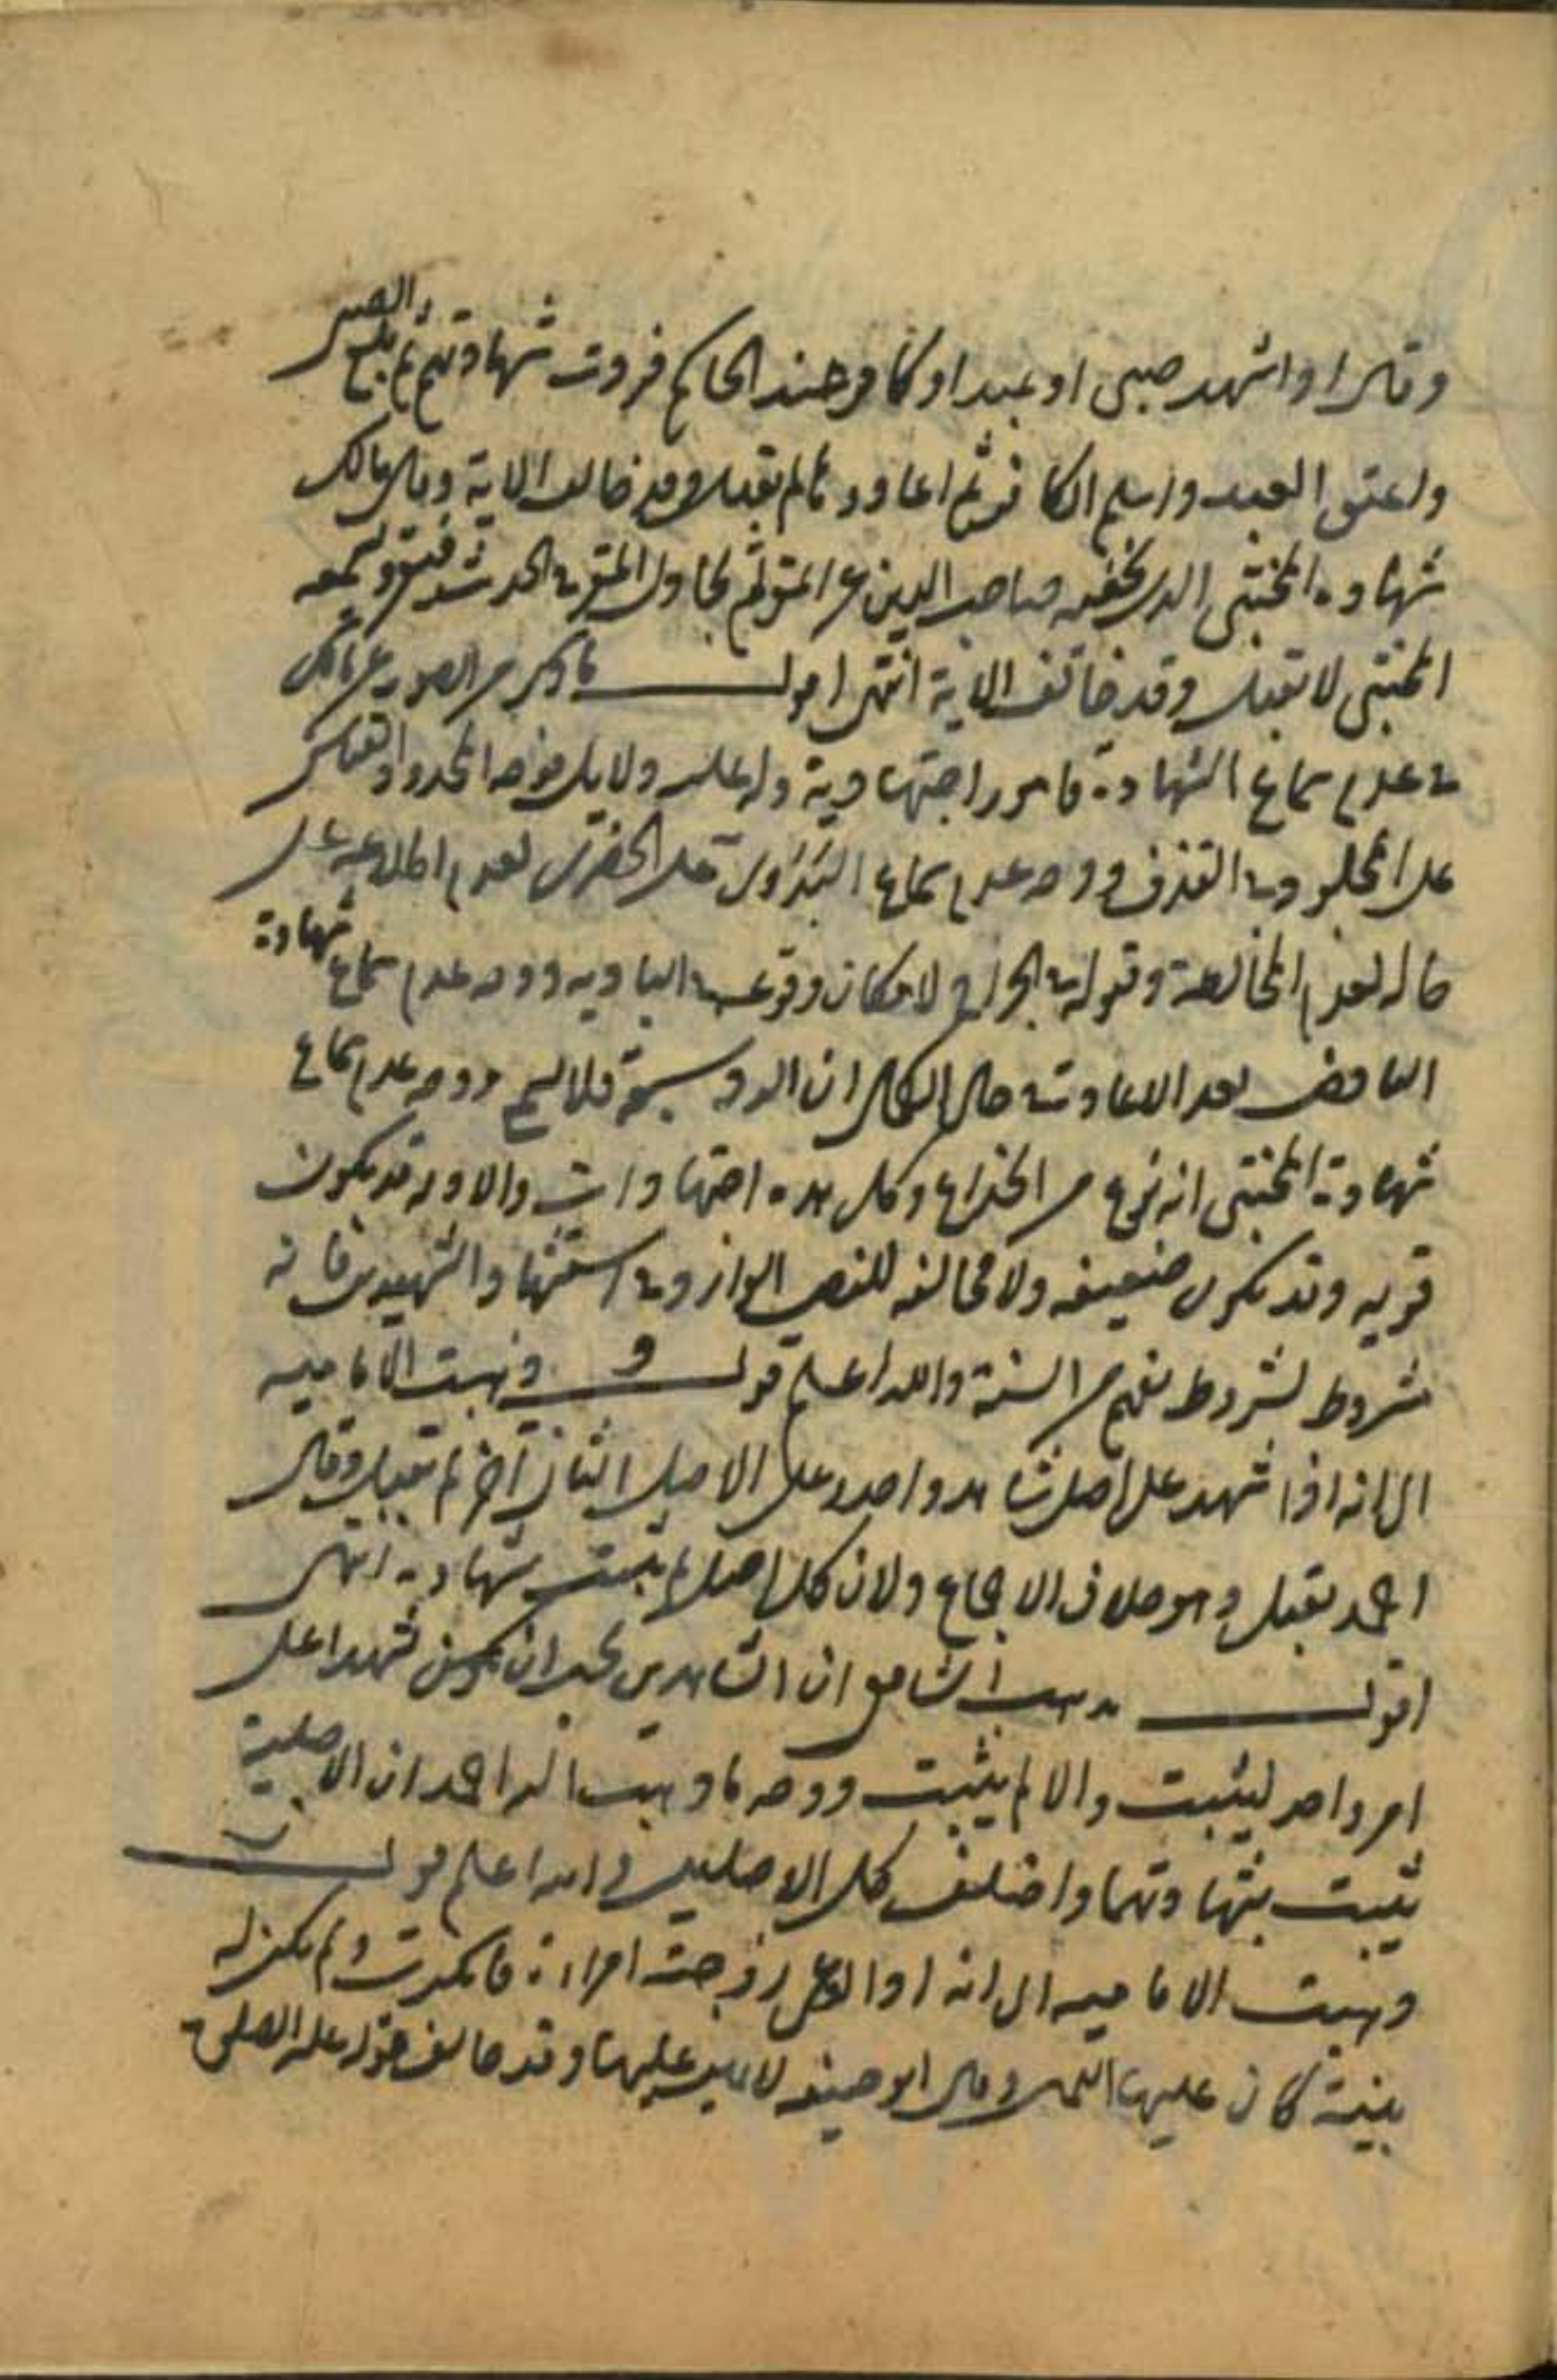 وقال اذا شهد صبي او عبد او كافر عند الحاكم فردت شهادتهم ثم بلغ الصبي
واعتق العبد واسلم الكافر ثم اعادوها لم تقبل وقد خالف الاية وقال مالك
شهادة المختبي الذي يخفيه صاحب الدين عن المقر ثم يحاول المقر الحديث فيقر ويسمعه
المختبي لا تقبل وقد خالف الاية انتهى اقول ما ذكر من الصور عن مالك
في عدم سماع الشهادة فامور اجتهادية وله عليه دلايل
على المجلود في القذف ووجه عدم سماع البدوي على الحضري لعدم اطلاعه على
حاله لعدم المخالطة وقبوله في الجراح لامكان وقوعه في البادية ووجه عدم سماع شهادة
الناقص بعد الاعادة في حال الكمال ان الرد فلا ووجه عدم سماع
شهادة المختبي انه نوع من الخداع وكل هذه اجتهادات والادلة قد يكون
قوية وقد يكون ضعيفة ولا مخالفة للنص الوارد في استشهاد الشهيدين فانه
مشروط بشروط تفهم من السنة والله اعلم قوله و ذهبت الامامية
الى انه اذا شهد على اصل شاهد واحد وعلى الاصل الثاني آخر لم تقبل وقال
احمد يقبل وهو خلاف الاجماع ولان كل اصل لم يثبت شهادته انتهى
اقول مذهب الشافعي ان الشاهدين يجب ان يكون شهدا على
امر واحد ليثبت والا لم يثبت ووجه ما ذهب اليه احمد ان الاصلية
يثبت بشهادتهما واختلف كل الاصلين والله اعلم قوله
ذهبت الامامية الى انه اذا ادعى زوجية امراة فانكرت ولم يكن له
بينة كان عليها اليمين وقال ابو حنيفة لا يمين عليها وقد خالف قوله عليه الصلوة